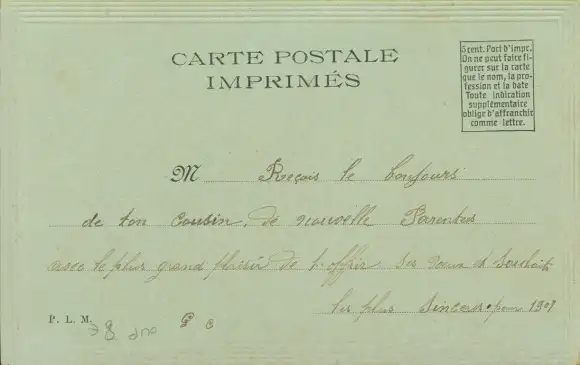 CARTE POSTALE
IMPRIMÉS
5 cent. Port d'impr.
On ne peut faire fi-
gurer sur la carte
que le nom, la pro-
fession et la date
Toute indication
supplémentaire
oblige d'affranchir
comme lettre.
M Reçois le bonjours
de ton cousin, de nouvelle Parentes
avec le plus grand plaisir de t'offrir ses vœux et souhaits
les plus sincers pour 1907
P. L. M.